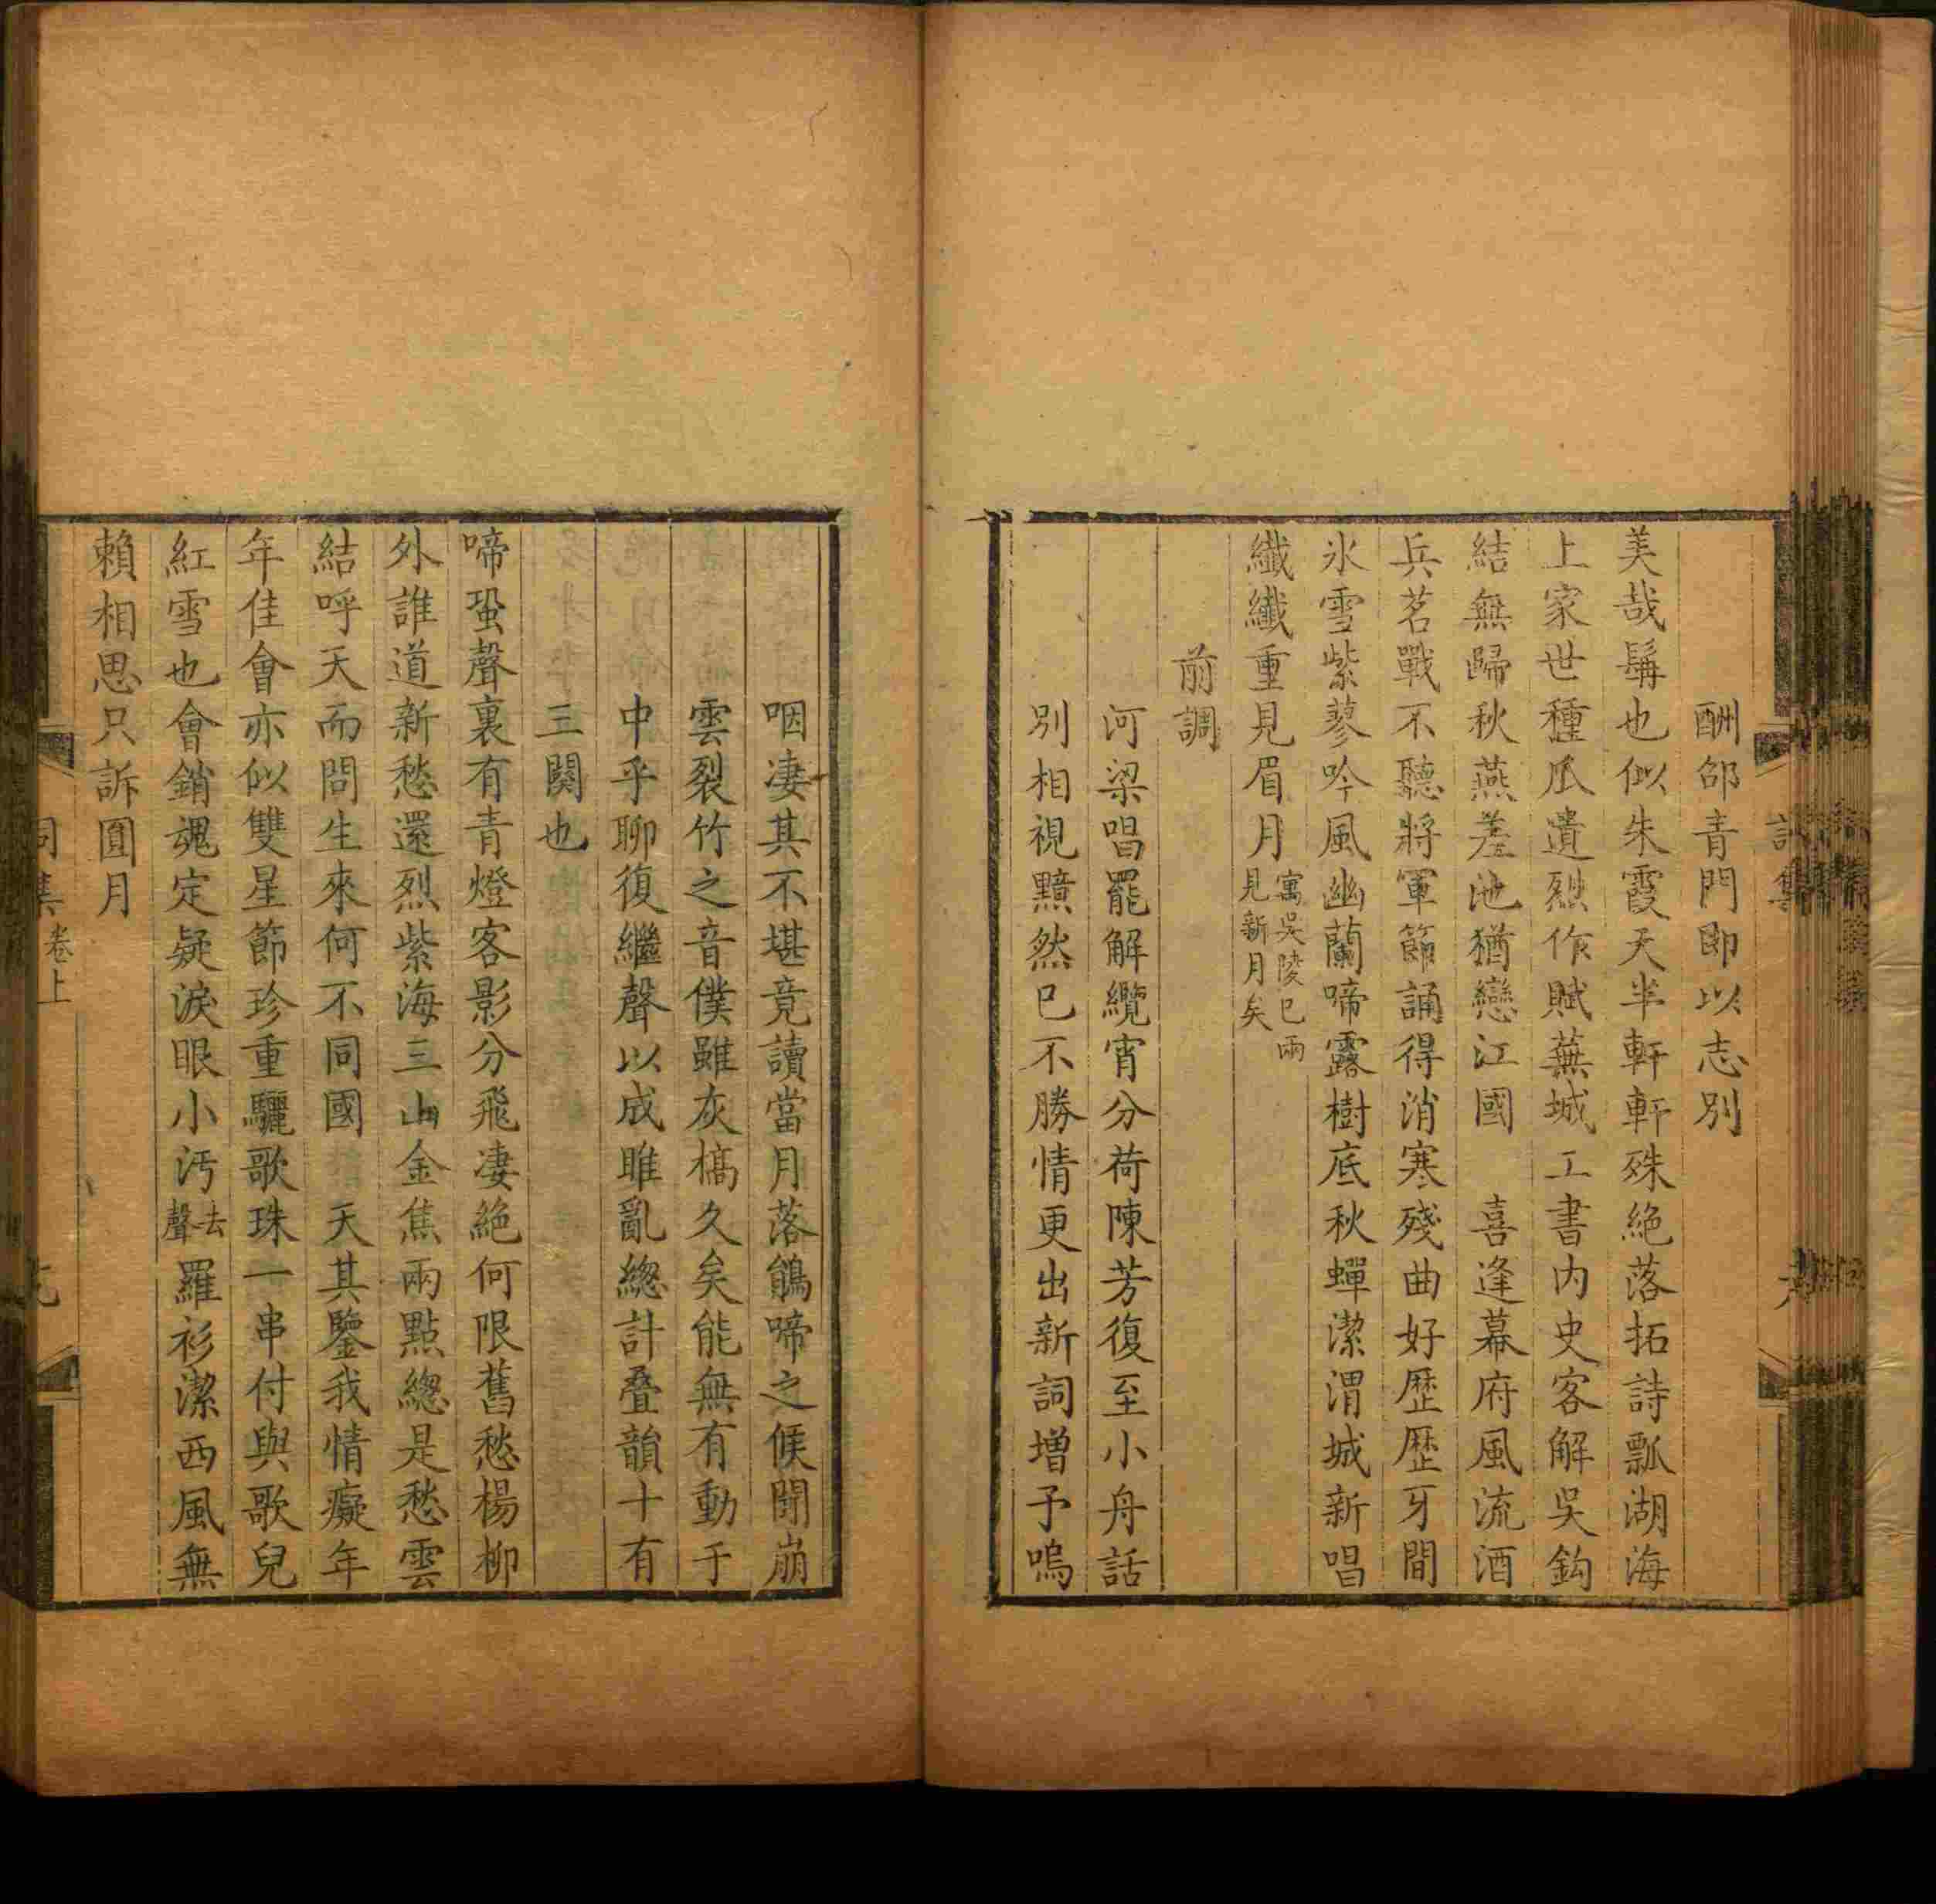 酬邵青門即以志別
美哉髯也似朱霞天半軒軒殊絶落拓詩瓢湖海
上家世種瓜遺烈作賦蕪城工書内史客解吳鈎
結無歸秋燕差池猶戀江國　喜逢幕府風流酒
兵茗戰不聽將軍節誦得消寒殘曲好歷歷牙間
氷雪紫蓼吟風幽蘭啼露樹底秋蟬潔渭城新唱
纖纖重見眉月寓吳陵已兩見新月矣
前調
河梁唱罷解纜宵分荷陳芳復至小舟話
別相視黯然已不勝情更出新詞增予嗚
咽凄其不堪竟讀當月落鵑啼之候聞崩
雲裂竹之音僕雖灰槁久矣能無有動于
中乎聊復繼聲以成雎亂總計叠韻十有
三闋也
啼蛩聲裏有青燈客影分飛凄絶何限舊愁楊柳
外誰道新愁還烈紫海三山金焦兩點總是愁雲
結呼天而問生來何不同國　天其鑒我情癡年
年佳會亦似雙星節珍重驪歌珠一串付與歌兒
紅雪也會銷魂定疑淚眼小汚去聲羅衫潔西風無
賴相思只訴圓月
詞集卷上